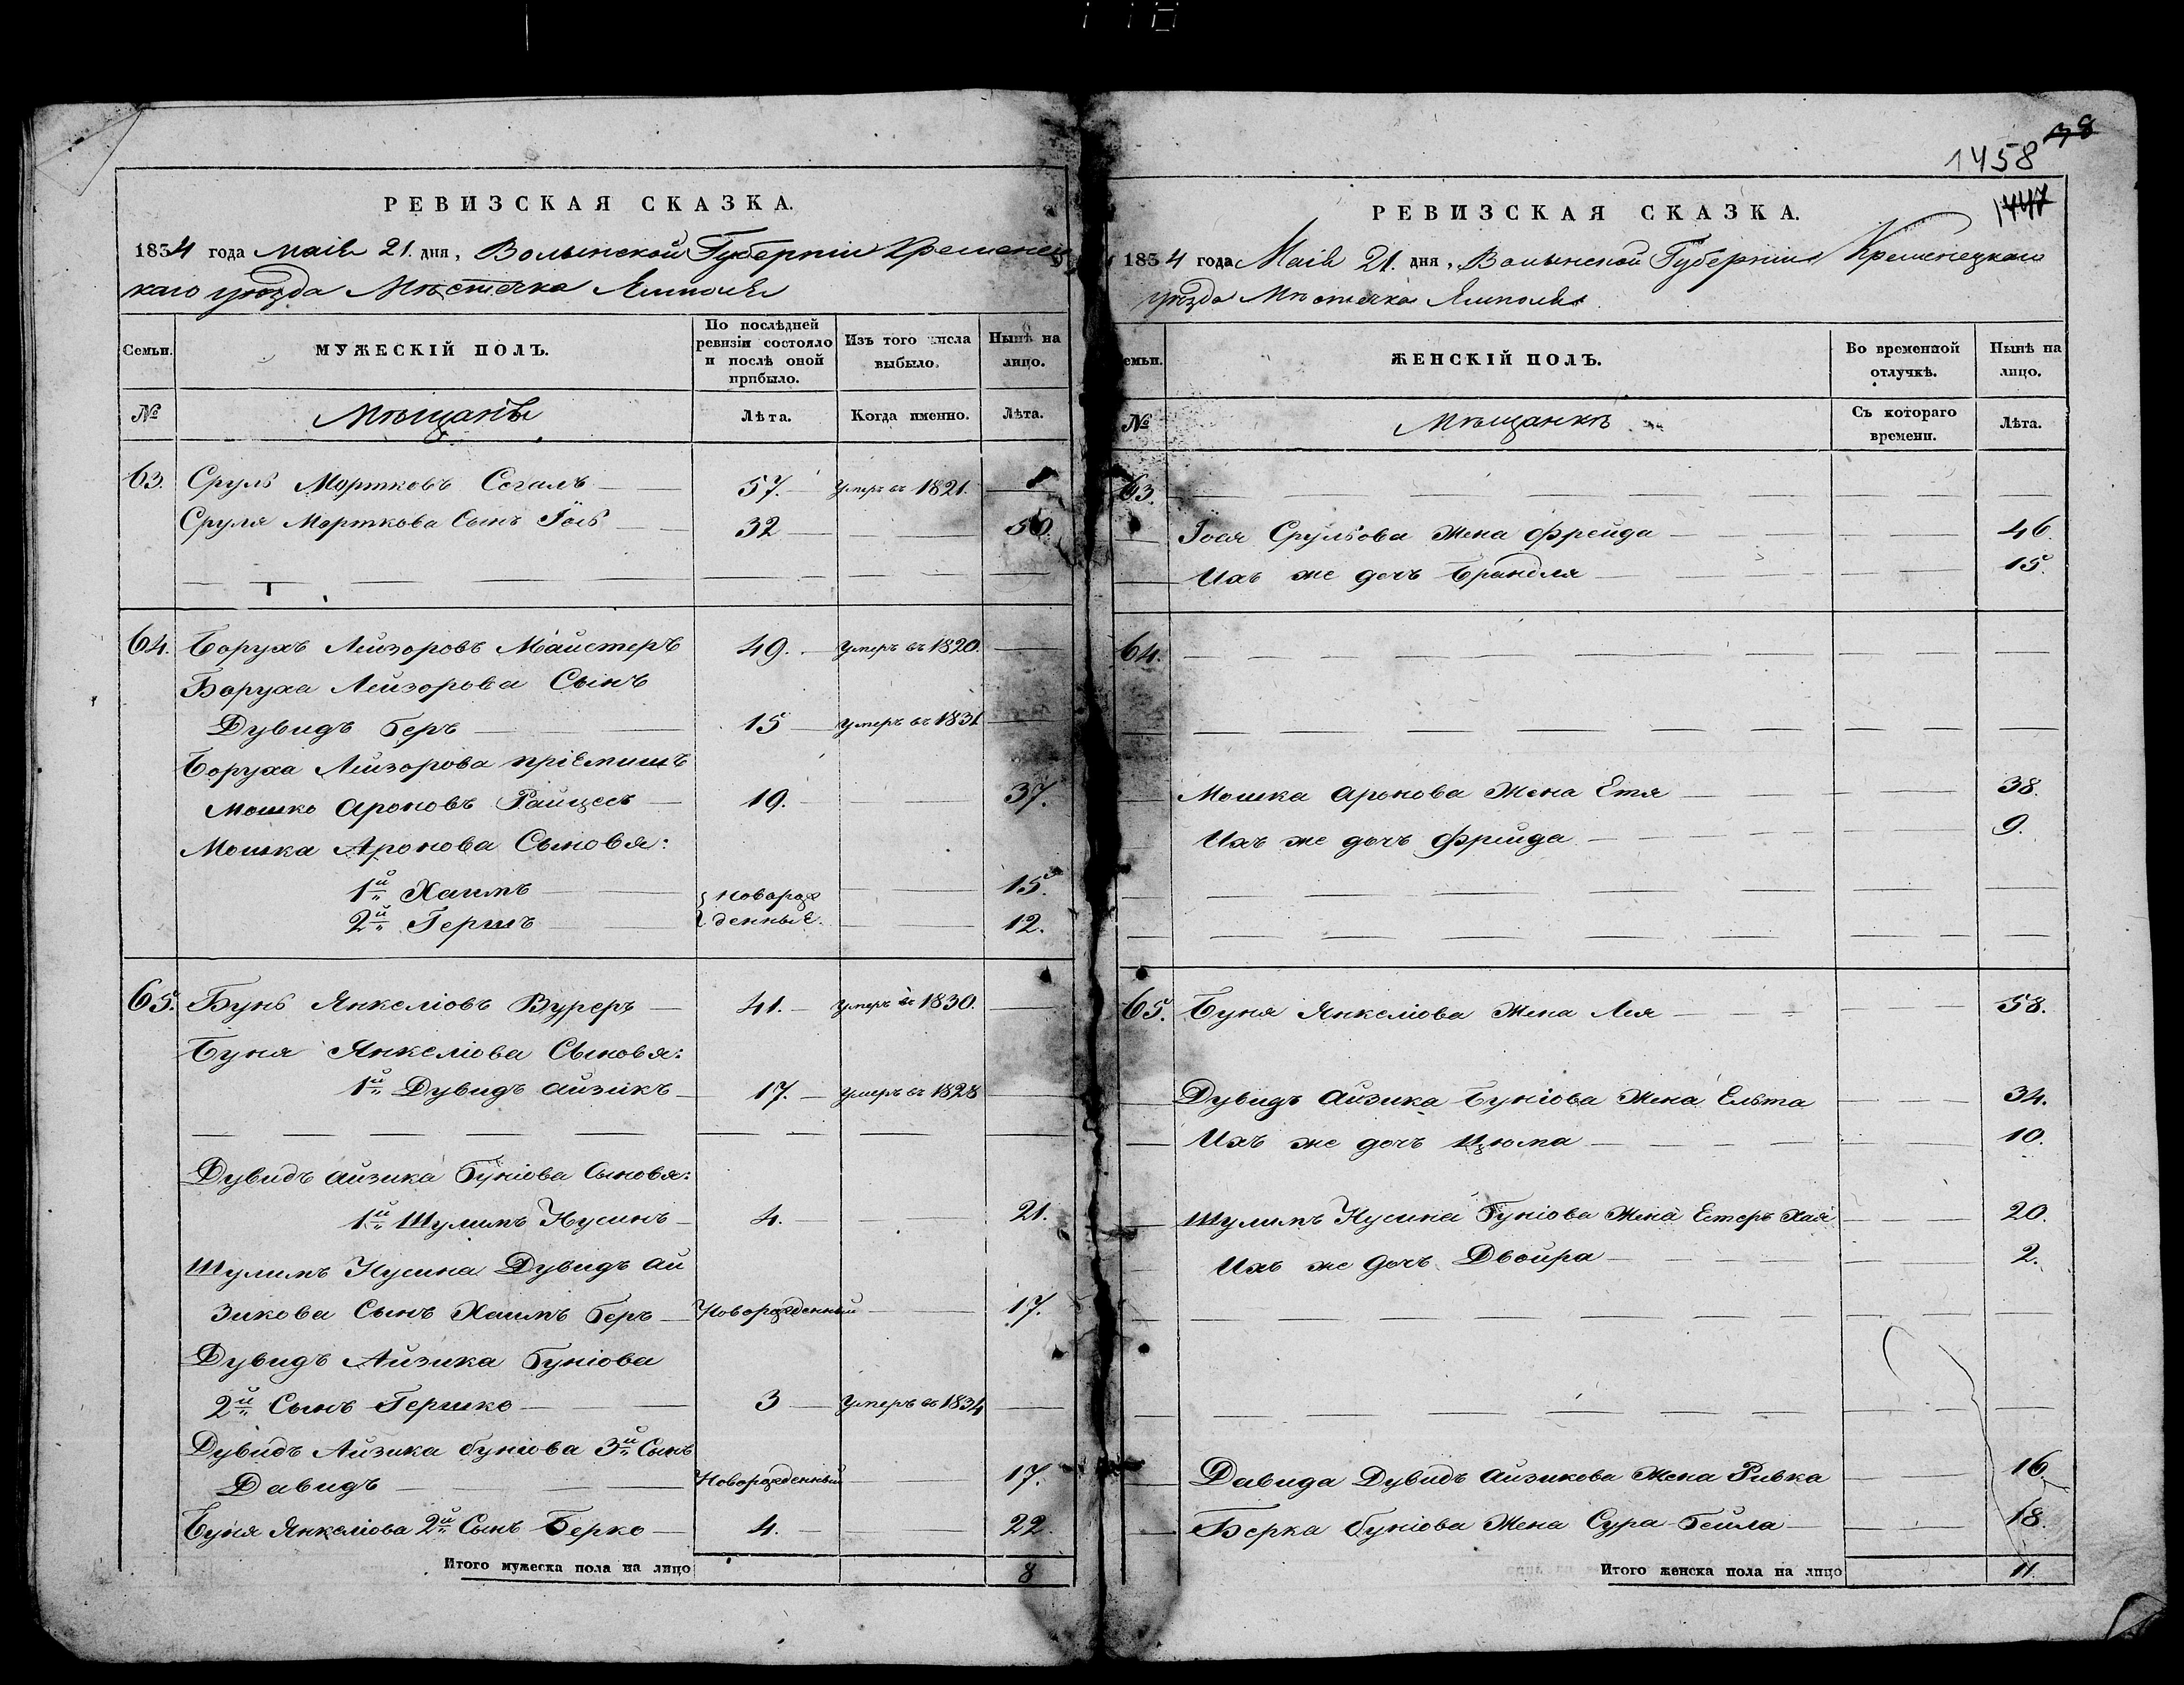 РЕВИЗСКАЯ СКАЗКА.
1834 года Маія 21. дня, Волынской Губерніи Кременец
каго уѣзда Мѣстечка Ямполя
Семьи. МУЖЕСКІЙ ПОЛЪ. По послѣдней ревизіи состояло и послѣ оной прибыло. Изъ того числа выбыло. Нынѣ на лицо.
№ Мѣщанѣ Лѣта. Когда именно. Лѣта.
63. Сруль Мортковъ Сегалъ 57. умеръ въ 1821.
Сруля Морткова Сынъ Іось 32 50.
64. Борухъ Лейзоровъ Майстеръ 49. умеръ въ 1820.
Боруха Лейзорова Сынъ
Дувидъ Беръ 15 умеръ въ 1831
Боруха Лейзорова пріемишъ
Мошко Ароновъ Райцесъ 19. 37.
Мошка Аронова Сыновя:
1й Хаимъ новорож 15.
2й Гершъ денные. 12.
65. Бунь Янкеліовъ Вуреръ 41. умеръ въ 1830.
Буня Янкеліова Сыновя:
1й Дувидъ Айзикъ 17. умеръ въ 1828
Дувидъ Айзика Буніова Сыновя:
1й Шулимъ Нусинъ 4. 21.
Шулимъ Нусина Дувидъ Ай
зикова Сынъ Хаимъ Беръ Новорожденный 17.
Дувидъ Айзика Буніова
2й Сынъ Гершко 3 умеръ въ 1834
Дувидъ Айзика Буніова 3й Сынъ
Давидъ Новорожденный 17.
Буня Янкеліова 2й Сынъ Берко 4. 22.
Итого мужеска пола на лицо 8
38
1458
1447
РЕВИЗСКАЯ СКАЗКА.
1834 года Маія 21. дня, Волынской Губерніи Кременецкаго
уѣзда Мѣстечка Ямполя
емьи. ЖЕНСКІЙ ПОЛЪ. Во временной отлучкѣ. Нынѣ на лицо.
№ Мѣщанкѣ Съ котораго времени. Лѣта.
63.
Іося Срульова Жена Фрейда 46.
Ихъ же дочь Брандля 15.
64.
Мошка Аронова Жена Етя 38.
Ихъ же дочь Фрейда 9.
65. Буня Янкеліова Жена Лея 58.
Дувидъ Айзика Буніова Жена Ельта 34.
Ихъ же дочь Цюма 10.
Шулимъ Нусина Буніова Жена Естеръ Хая 20.
Ихъ же Дочь Двойра 2.
Давида Дувидъ Айзикова Жена Ривка 16.
Берка Буніова Жена Сура Бейла 18.
Итого женска пола на лицо 11.